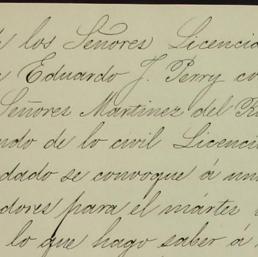 los Señores Licencia
Eduardo J. Perry co
Señores Martinez del R
ndo de lo civil Licenci
dado se convoque á un
dores para el mártes
lo que hago saber á